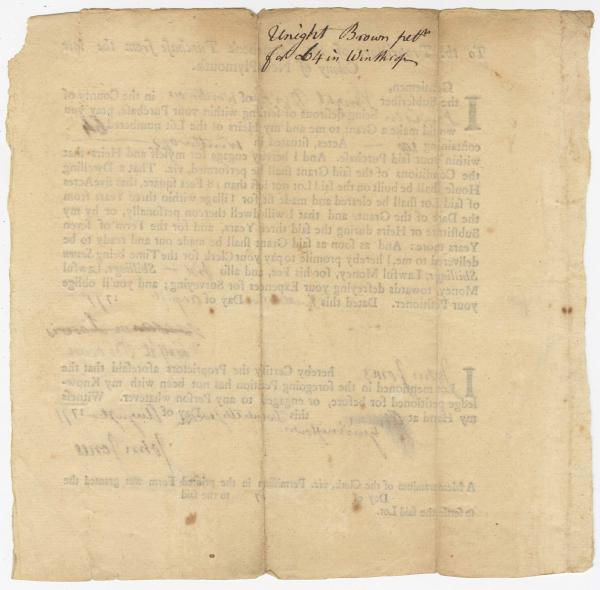 Unight Brown pettn
for 64 in Winthrop
To the Kennebeck Purchase from the late
Colony of New-Plymouth.
Gentlemen,
I the Subscriber in the County of
being desirous of settling within your Purchase, pray you
would make a Grant to me and my Heirs of the Lot numbered 64
containing Acres, situated in Winthrop
within your said Purchase. And I hereby engage for myself and Heirs that
the Conditions of the said Grant shall be performed, viz. That a Dwelling
House shall be built on the said Lot not less than 18 Feet square, that five Acres
of said Lot shall be cleared and made fit for Tillage within three Years from
the Day of the Grant; and that I will dwell thereon personally, or by my
Substitute or Heirs during the said three Years, and for the Term of seven
Years more: And as soon as said Grant shall be made out and ready to be
delivered to me, I hereby promise to pay your Clerk for the Time being Seven
Shillings, Lawful Money, for his Fee, and also Shillings, Lawful
Money, towards defreying your Expences for Surveying; and you'll oblige
your Petitioner. Dated this Day of 177
I John Jones hereby Certify the Proprietors aforesaid that the
Lot mentioned in the foregoing Petition has not been with my Know-
ledge petitioned for before, or engaged to any Person whatever. Witness
my Hand at this Day of 177
John Jones
A Memorandum of the Clerk, viz. Permission in the printed Form was granted the
Day of 17 to the said
to settle the said Lot.